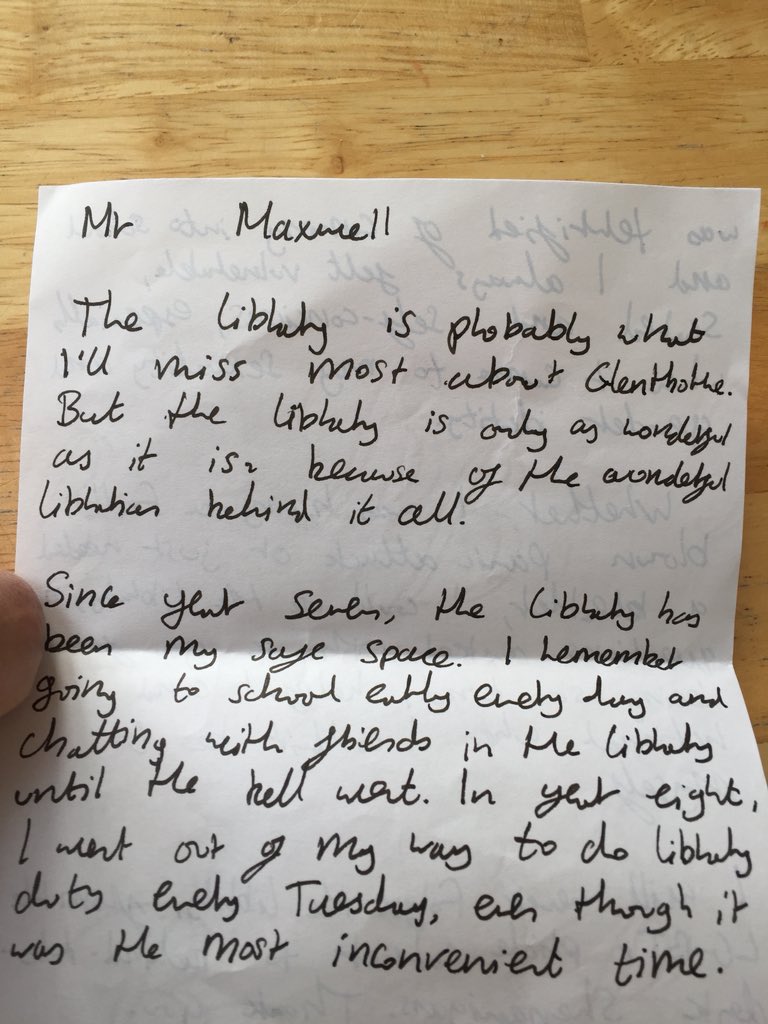 Mr Maxwell
The library is probably what
I'll miss most about Glenthorne.
But the library is only as wonderful
as it is, because of the wonderful
librarian behind it all.
Since year seven, the library has
been my safe space. I remember
going to school early every day and
chatting with friends in the library
until the bell went. In year eight,
I went out of my way to do library
duty every Tuesday, even though it
was the most inconvenient time.